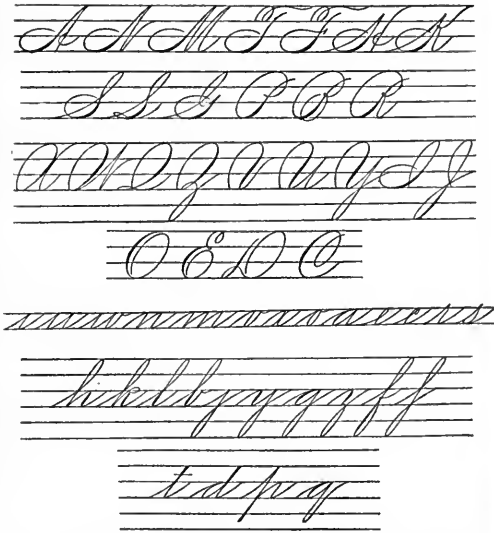 A N M T F H K
S L G P B R
X W Q Z V U Y I J
O E D C
i u w n m v x o a e c r s
h k l b j y g z f
t d p q